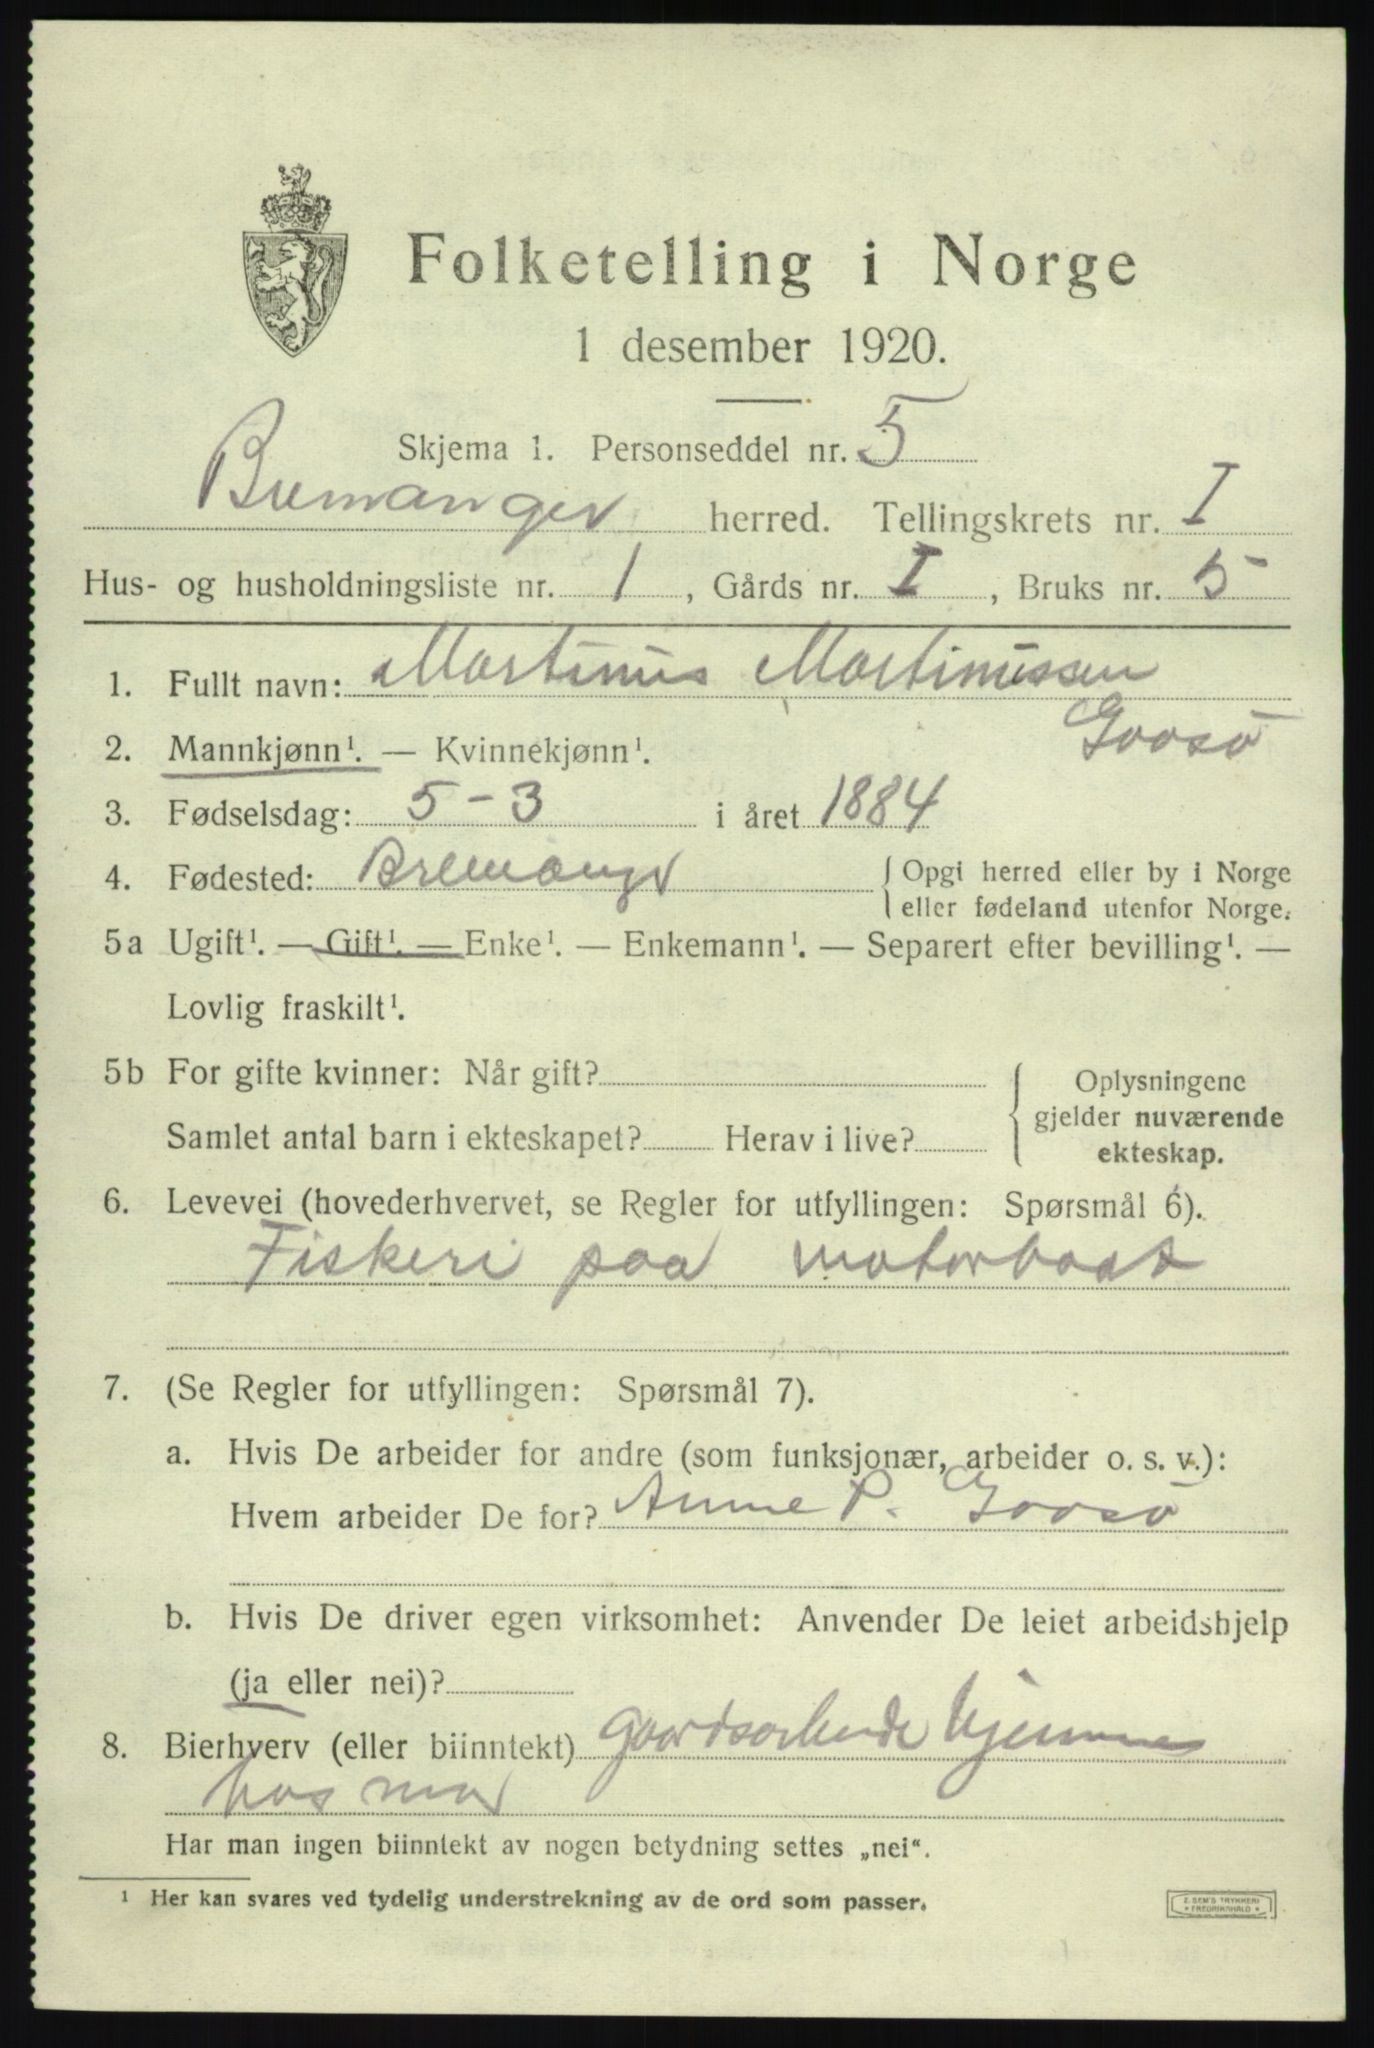 Folketelling i Norge
1 desember 1920.
Skjema 1. Personseddel nr. 5
Bremanger herred. Tellingskrets nr. I
Hus- og husholdningsliste nr. 1, Gårds nr. I, Bruks nr. 5
1. Fullt navn: Martinus Martinussen
Goosø
2. Mannkjønn¹. — Kvinnekjønn¹.
3. Fødselsdag: 5-3 i året 1884
4. Fødested: Bremanger { Opgi herred eller by i Norge
eller fødeland utenfor Norge.
5a Ugift¹. — Gift¹. — Enke¹. — Enkemann¹. — Separert efter bevilling¹. —
Lovlig fraskilt¹.
5b For gifte kvinner: Når gift? { Oplysningene
gjelder nuværende
Samlet antal barn i ekteskapet? Herav i live?
ekteskap.
6. Levevei (hovederhvervet, se Regler for utfyllingen: Spørsmål 6).
Fiskeri paa motorbaat
7. (Se Regler for utfyllingen: Spørsmål 7).
a. Hvis De arbeider for andre (som funksjonær, arbeider o. s. v.):
Hvem arbeider De for? Anne P. Goosø
b. Hvis De driver egen virksomhet: Anvender De leiet arbeidshjelp
(ja eller nei)?
8. Bierhverv (eller biinntekt) gaardsarbeide hjemme
hos mor
Har man ingen biinntekt av nogen betydning settes „nei“.
¹ Her kan svares ved tydelig understrekning av de ord som passer.
Z. SEM'S TRYKKERI
* FREDRIKSHALD *